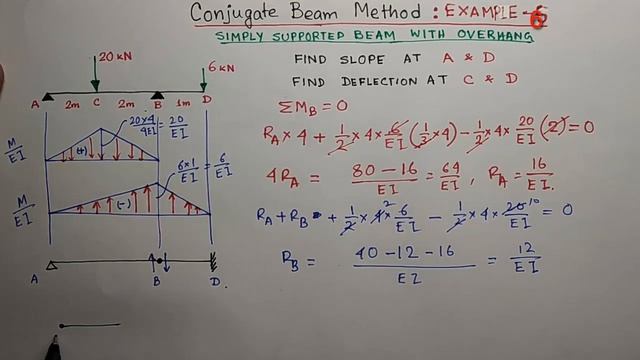 Conjugate Beam Method : EXAMPLE - 6
SIMPLY SUPPORTED BEAM WITH OVERHANG
FIND SLOPE AT A & D
FIND DEFLECTION AT C & D
20 kN
6 kN
A 2m C 2m B 1m D
M/EI
(+)
20×4/4EI = 20/EI
M/EI
(-)
6×1/EI = 6/EI
A B D
ΣM_B = 0
R_A × 4 + 1/2 × 4 × 6/EI (1/3 × 4) - 1/2 × 4 × 20/EI (2) = 0
4R_A = 80 - 16/EI = 64/EI , R_A = 16/EI.
R_A + R_B + 1/2 × 4² × 6/EI - 1/2 × 4 × 20¹⁰/EI = 0
R_B = 40 - 12 - 16/EI = 12/EI